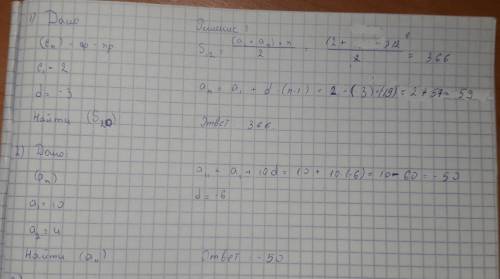 1) Дано
(cₙ) - ар-пр
c₁ = 2
d = -3
Найти (S₂₀)
Решение:
= (a₁ + aₙ) · n / 2 = (2 + / 2 = 366
aₙ = a₁ + d (n-1) = 2 - (3) · (19) = 2 + 57 = 59
Ответ 366
2) Дано:
(aₙ)
a₁ = 10
a₂ = 4
Найти (a₁₁)
a₁₁ = a₁ + 10d = 10 + 10 (-6) = 10 - 60 = -50
d = -6
Ответ -50